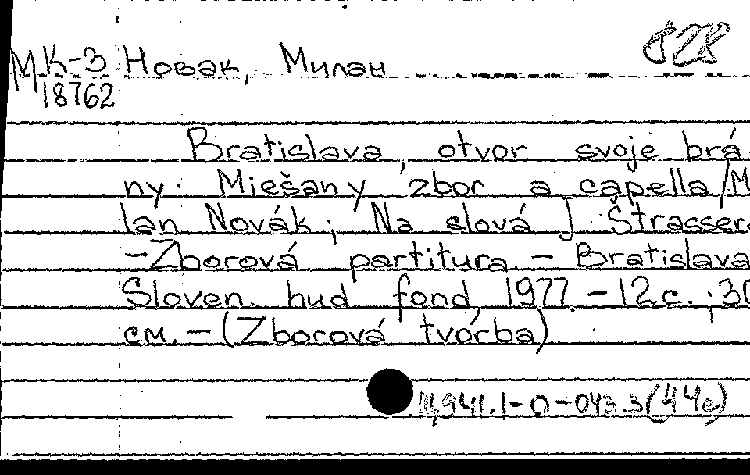 828
МК-3 Новак, Милан
18762
Bratislava, otvor svoje brá
ny. Miešany zbor a capella / M
lan Novák; Na slová J. Štrassera
-Zborová partitura - Bratislava
Sloven. hud. fond, 1977. - 12 с.; 30
см. - (Zborová tvórba)